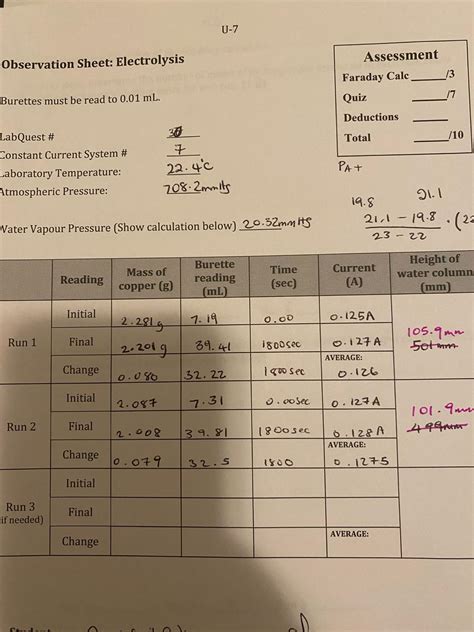 U-7
Observation Sheet: Electrolysis
Assessment
Faraday Calc /3
Quiz /7
Deductions
Total /10
Burettes must be read to 0.01 mL.
LabQuest #
Constant Current System # 7
Laboratory Temperature: 22.4°C
Atmospheric Pressure: 708.2mmHg
PA+
19.8 21.1
21.1 - 19.8
23 - 22
Water Vapour Pressure (Show calculation below) 20.32mmHg
Reading Mass of copper (g) Burette reading (mL) Time (sec) Current (A) Height of water column (mm)
Run 1
Initial 2.281g 7.19 0.00 0.125A
Final 2.201g 39.41 1800sec 0.127A
105.9mm
501mm
AVERAGE:
Change 0.080 32.22 1800sec 0.126
Run 2
Initial 2.087 7.31 0.00sec 0.127A
101.9mm
499mm
Final 2.008 39.81 1800sec 0.128A
AVERAGE:
Change 0.079 32.5 1800 0.1275
Run 3
(if needed)
Initial
Final
AVERAGE:
Change